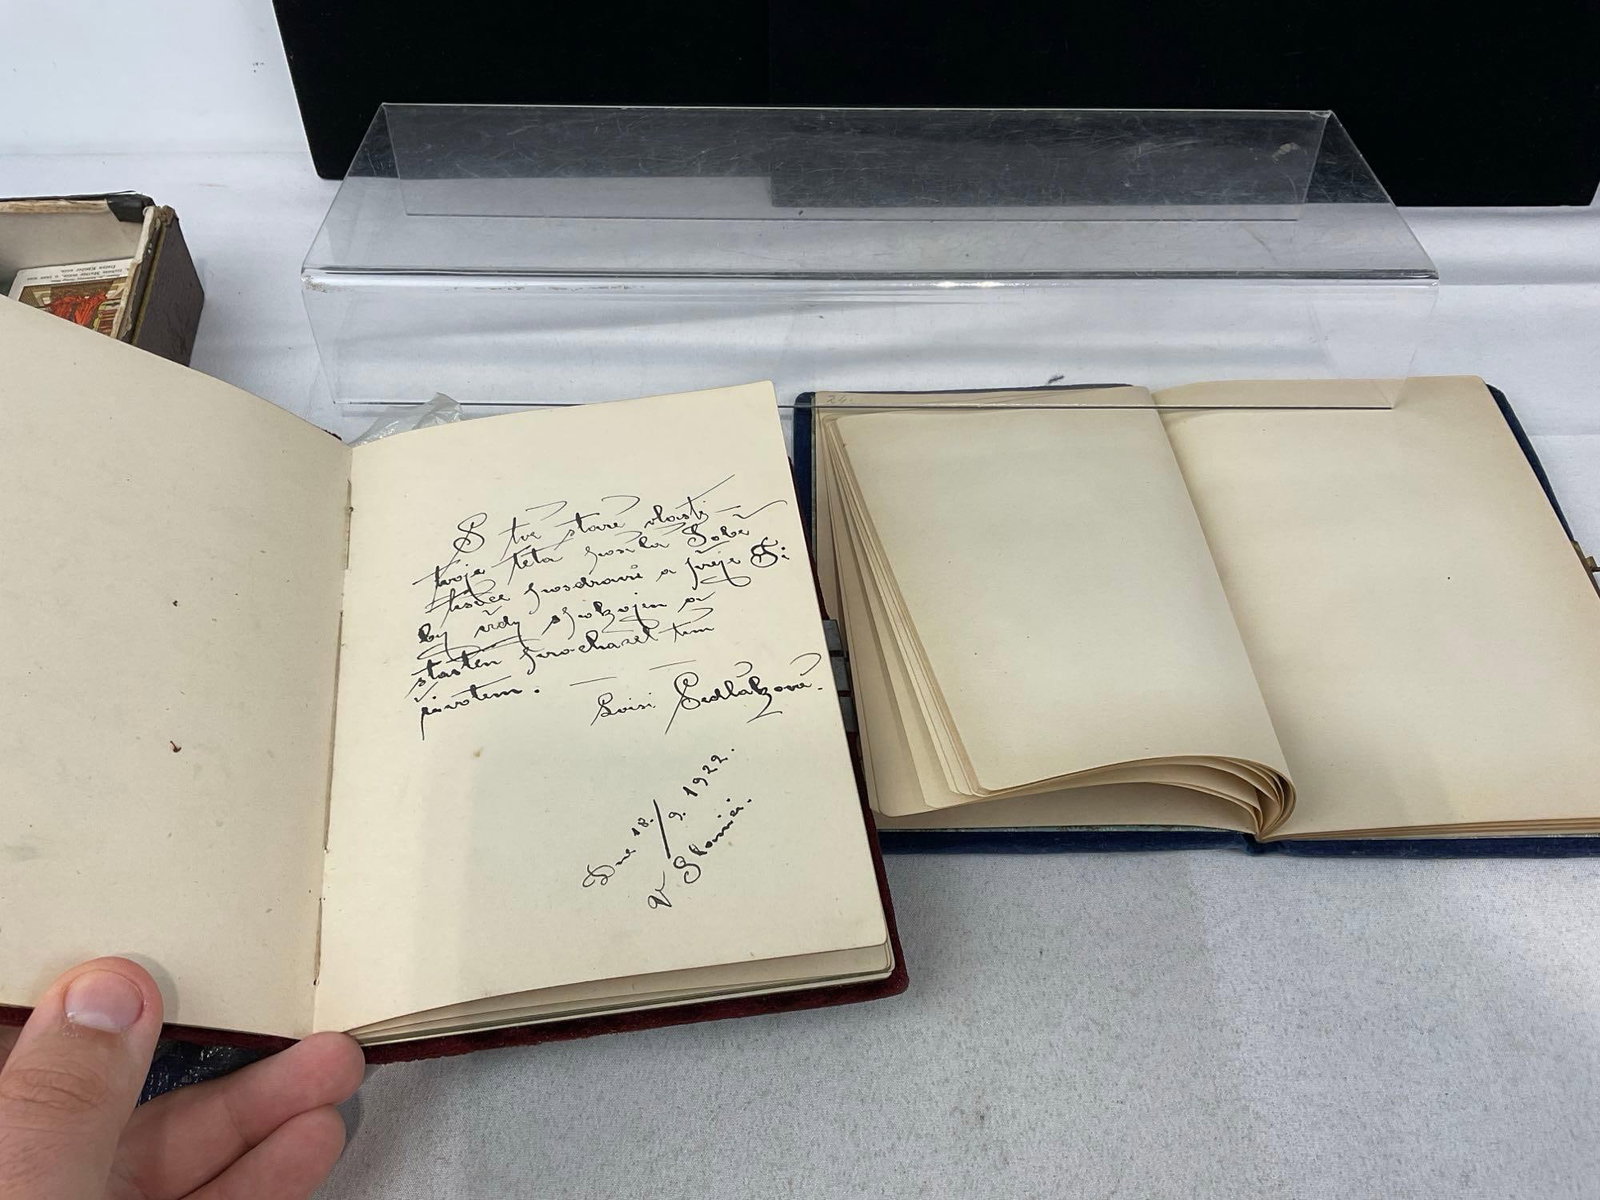 S tvé staré vlasti
tvoje teta posílá Tobě
tisíce pozdravů a přeje Ti
by vždy spokojen a
šťasten procházel tím
životem.
Loisi Sedláková.
Dne 18./9. 1922.
v Slanici.
24.